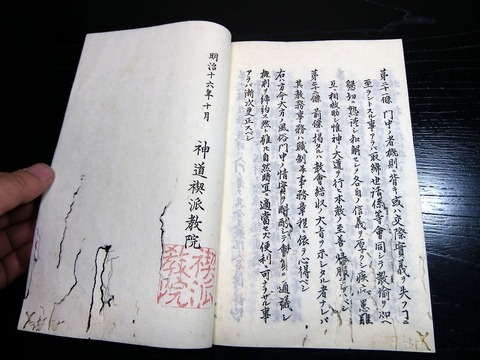 第二十條 門中ノ者概則ニ背キ或ハ交際實義ヲ失フニ
至ラントスル事アラバ取締世話係等會同シテ教諭ヲ加ヘ
懇切ニ熟談和解セシメ各自ノ信義ヲ厚クシ疾病患難
互ニ相救助シ惟神ノ大道ヲ行ヒ本教ノ至善ニ歸服スベシ
第二十一條 前條ニ掲クルハ教會結収ノ大旨ヲ示シタル者ナレバ
其教務事務ハ職制并事務章程ニ依テ心得ベシ
右ハ方今大方ノ風俗門中ノ情實ヲ斟酌シ會衆ノ通議ヲ
概則ヲ締約ス然ト雖モ自然時宜ニ適當セズ便利ノ可ナラザル事
アラバ漸次更正スベシ
明治十六年十月
神道禊派教院
禊派
教院